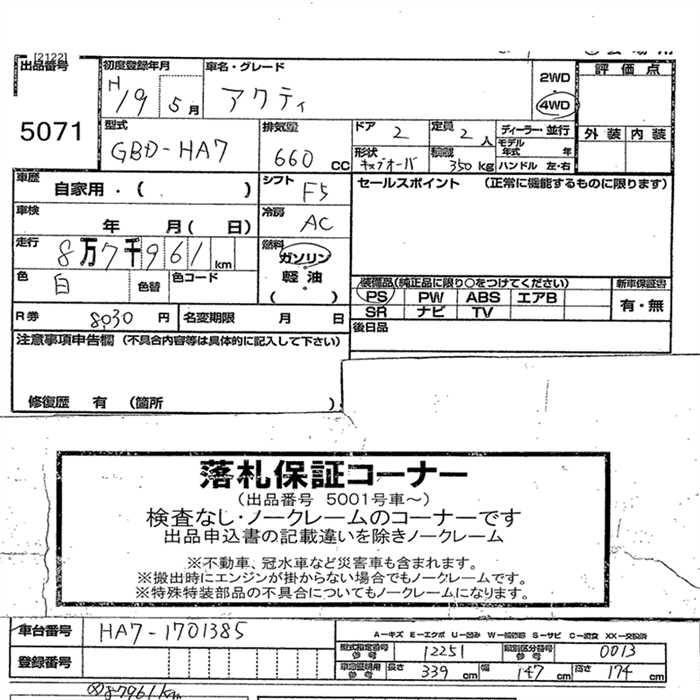 [2122]
出品番号 初度登録年月 車名・グレード 2WD 評価点
H19 5月 アクティ 4WD
5071 型式 排気量 ドア 2 定員 2人 ディーラー・並行 外装 内装
GBD-HA7 660CC 形状 キャブオーバ 積載 350kg モデル年式 年 ハンドル 左・右
車歴 自家用・( ) シフト F5 セールスポイント (正常に機能するものに限ります)
車検 年 月( 日) 冷房 AC
走行 8万7千961km 燃料 ガソリン
色 白 色替 色コード 軽油 装備品(純正品に限り○をつけてください) 新車保証書
( ) PS PW ABS エアB 有・無
R券 8,030円 名変期限 月 日 SR ナビ TV
注意事項申告欄(不具合内容等は具体的に記入して下さい) 後日品
修復歴 有 (箇所 ).
落札保証コーナー
(出品番号 5001号車~)
検査なし・ノークレームのコーナーです
出品申込書の記載違いを除きノークレーム
※不動車、冠水車など災害車も含まれます。
※搬出時にエンジンが掛からない場合でもノークレームです。
※特殊特装部品の不具合についてもノークレームになります。
車台番号 HA7-1701385 A-キズ E-エクボ U-凹み W-補修跡 S-サビ C-腐食 XX-交換済
登録番号 型式指定番号 参考 12251 類別区分番号 参考 0013
車庫証明用 参考 長さ 339cm 幅 147cm 高さ 174cm
87961km